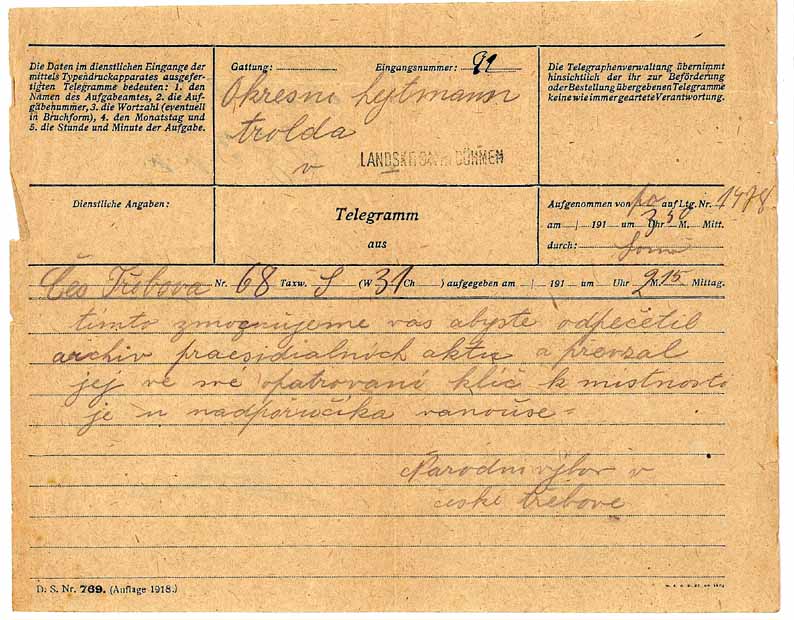 Die Daten im dienstlichen Eingange der
mittels Typendruckapparates ausgefer-
tigten Telegramme bedeuten: 1. den
Namen des Aufgabeamtes, 2. die Auf-
gabenummer, 3. die Wortzahl (eventuell
in Bruchform), 4. den Monatstag und
5. die Stunde und Minute der Aufgabe.
Gattung: Eingangsnummer: 91
Okresni hejtmann
trolda
v LANDSKRON IN BÖHMEN
Die Telegraphenverwaltung übernimmt
hinsichtlich der ihr zur Beförderung
oder Bestellung übergebenen Telegramme
keine wie immer geartete Verantwortung.
Dienstliche Angaben:
Telegramm
aus
Aufgenommen von pa auf Ltg. Nr. 1478
am / 191 um 3 50 Uhr M. Mitt.
durch:
Čes Třebova Nr. 68 Taxw. S (W 31 Ch ) aufgegeben am / 191 um Uhr 2 M. 15 Mittag.
tímto zmocnujeme vas abyste odpečetil
archiv praesidialních aktu a převzal
jej ve své opatrovaní klíč k mistnosto
je u nadporučíka vanouše =
Narodni výbor v
česke třebove
D. S. Nr. 769. (Auflage 1918.)